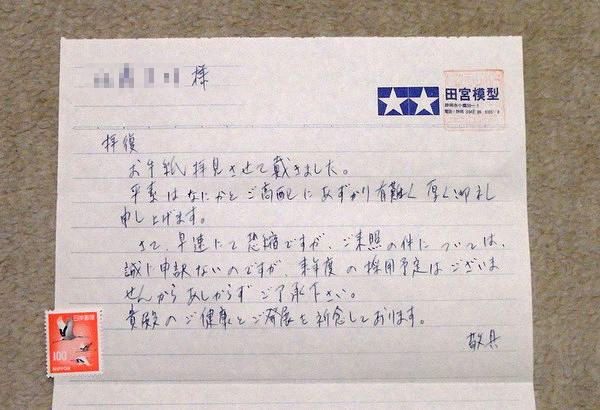 様
田宮模型
静岡市小鹿
拝復
お手紙拝見させて戴きました。
平素はなにかとご高配にあずかり有難く厚く御礼
申し上げます。
さて、早速にて恐縮ですが、ご来照の件については、
誠に申訳ないのですが、来年度の採用予定はございま
せんからあしからずご了承下さい。
貴殿のご健康とご発展を祈念しております。
敬具
日本郵便
100
NIPPON